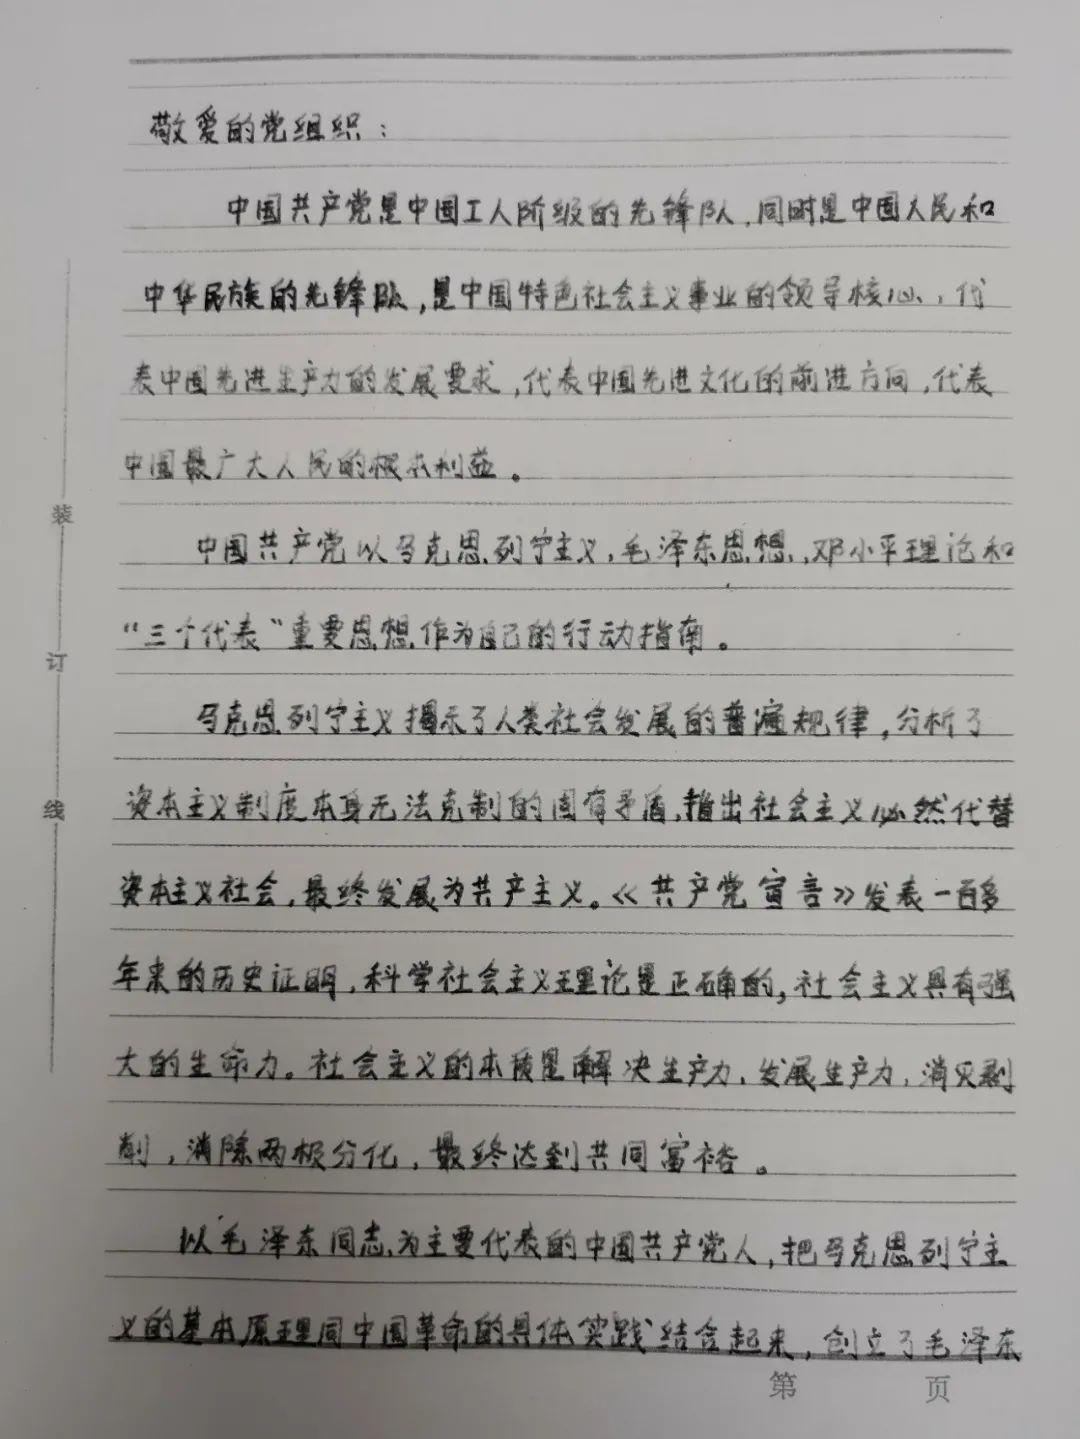 敬爱的党组织：
中国共产党是中国工人阶级的先锋队，同时是中国人民和
中华民族的先锋队，是中国特色社会主义事业的领导核心，代
表中国先进生产力的发展要求，代表中国先进文化的前进方向，代表
中国最广大人民的根本利益。
中国共产党以马克思列宁主义，毛泽东思想，邓小平理论和
“三个代表”重要思想作为自己的行动指南。
马克思列宁主义揭示了人类社会发展的普遍规律，分析了
资本主义制度本身无法克制的固有矛盾，指出社会主义必然代替
资本主义社会，最终发展为共产主义。《共产党宣言》发表一百多
年来的历史证明，科学社会主义理论是正确的，社会主义具有强
大的生命力。社会主义的本质是解决生产力，发展生产力，消灭剥
削，消除两极分化，最终达到共同富裕。
以毛泽东同志为主要代表的中国共产党人，把马克思列宁主
义的基本原理同中国革命的具体实践结合起来，创立了毛泽东
装
订
线
第 页